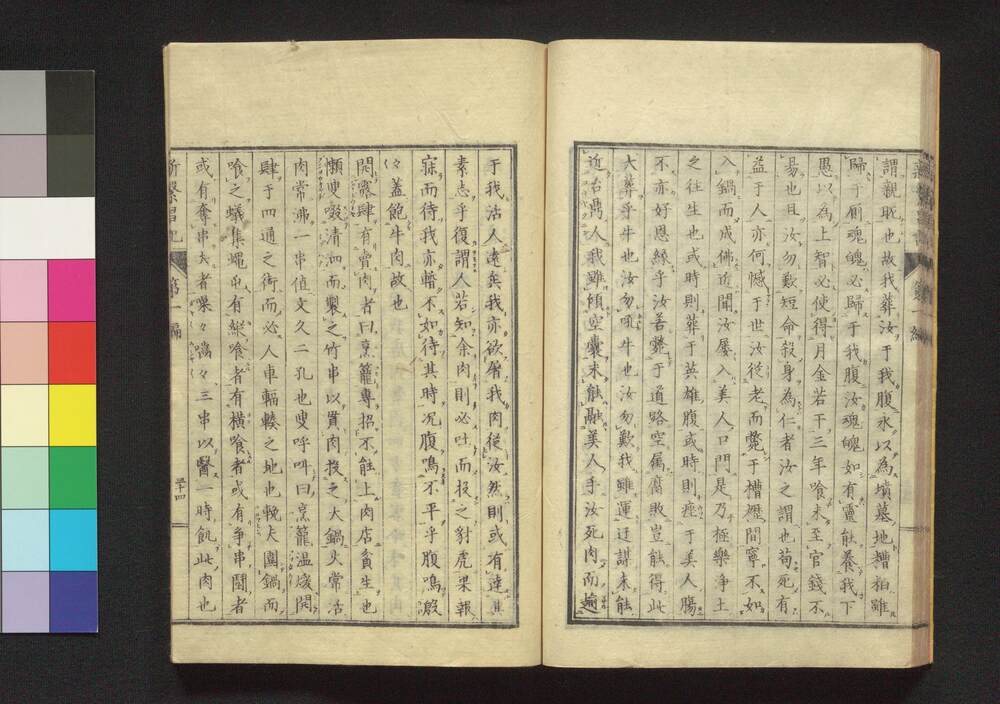 謂親耴也故我葬汝于我腹永以為墳墓地糟粕雖
歸于厠魂魄必歸于我腹汝魂魄如有靈能養我下
愚以為上智必使得月金若干三年喰未至官錢不
昜也且汝勿歎短命殺身為仁者汝之謂也苟死有
益于人亦何憾于世汝従老而斃于槽櫪間寧不如
入鍋而成佛近聞汝屡入美人口門是乃極樂浄土
之往生也或時則葬于英雄腹或時則瘞于美人膓
不亦好恩縁乎汝若斃于道路空属腐敗豈能得此
大葬乎牛也汝勿吼牛也汝勿歎我雖運迂謀未能
近台鼎人我雖傾空嚢未能融美人乎汝死肉而遍
于我沽人遠矣我亦欲屠我肉従汝然則或有達其
素志乎復謂人若知余肉則必吐而投之豺虎果報
寐而待我亦暗不如待其時况腹鳴不平乎腹鳴殷
々蓋飽牛肉故也
閲露肆有賣肉者曰烹籠專招不能上肉店貧生也
懶叟啜清洫而製之竹串以貫肉投之大鍋火常活
肉常沸一串值文久二孔也叟呼呌曰烹籠温燠閲
肆于四通之街而必人車輻輳之地也輓夫圍鍋而
喰之蟻集蠅屯有縦喰者有横喰者或有争串鬪者
或有奪串去者喿々噣々三串以醫一時飢此肉也
新繁昌記
第一編
三十四